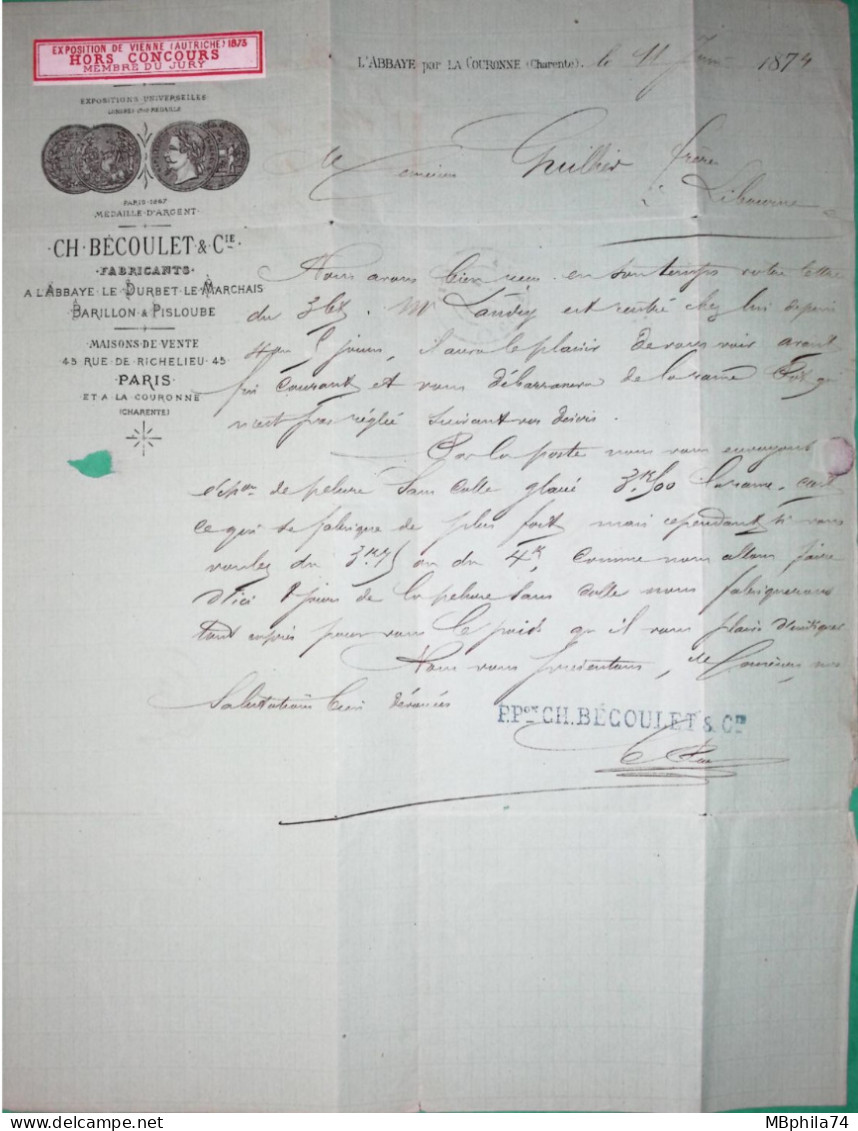 EXPOSITION DE VIENNE (AUTRICHE) 1873
HORS CONCOURS
MEMBRE DU JURY
EXPOSITIONS UNIVERSELLES
PARIS 1867
MEDAILLE D'ARGENT
CH. BÉCOULET & CIE
FABRICANTS
A L'ABBAYE LE DURBET LE MARCHAIS
BARILLON & PISLOUBE
MAISONS DE VENTE
45 RUE DE RICHELIEU 45
PARIS
ET A LA COURONNE
(CHARENTE)
L'ABBAYE par LA COURONNE (Charente). le 11 Juin 1874
Messieurs Guillier frères
à Libourne
Nous avons bien reçu en son temps votre lettre
du 3 Ct. Mr Landry est rentré chez lui depuis
4 ou 5 jours, il aura le plaisir de vous voir avant
fin courant et vous débarrassera de la rame qui
n'est pas réglée suivant vos désirs.
Par la poste nous vous envoyons
de pelure sans colle glacé 3k,500 la rame, c'est
ce qui se fabrique de plus fort mais cependant si vous
voulez du 3k75 ou du 4k, comme nous allons faire
d'ici 8 jours de la pelure sans colle nous fabriquerons
tout exprès pour vous le poids qu'il vous plaira d'indiquer
Nous vous présentons, Messieurs, nos
Salutations bien dévouées
P.Pon CH. BÉCOULET & CIE
MBphila74